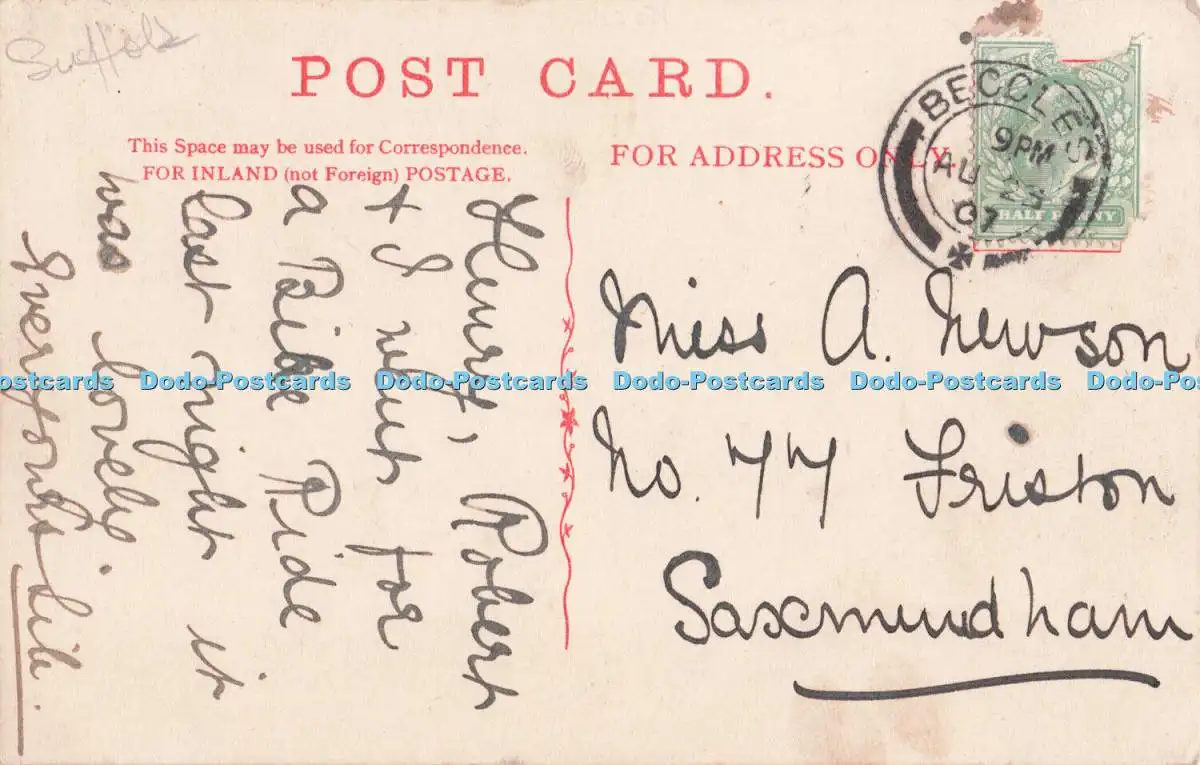 Suffolk
POST CARD.
This Space may be used for Correspondence.
FOR INLAND (not Foreign) POSTAGE.
FOR ADDRESS ONLY.
BECCLES
9 PM
AU 23
07
HALF PENNY
Henry, Robert
+ I went for
a Bike Ride
last night it
was lovely
Miss A. Newson
No. 77 Friston
Saxmundham
Dodo-Postcards Dodo-Postcards Dodo-Postcards Dodo-Postcards Dodo-Postcards Dodo-Postcards